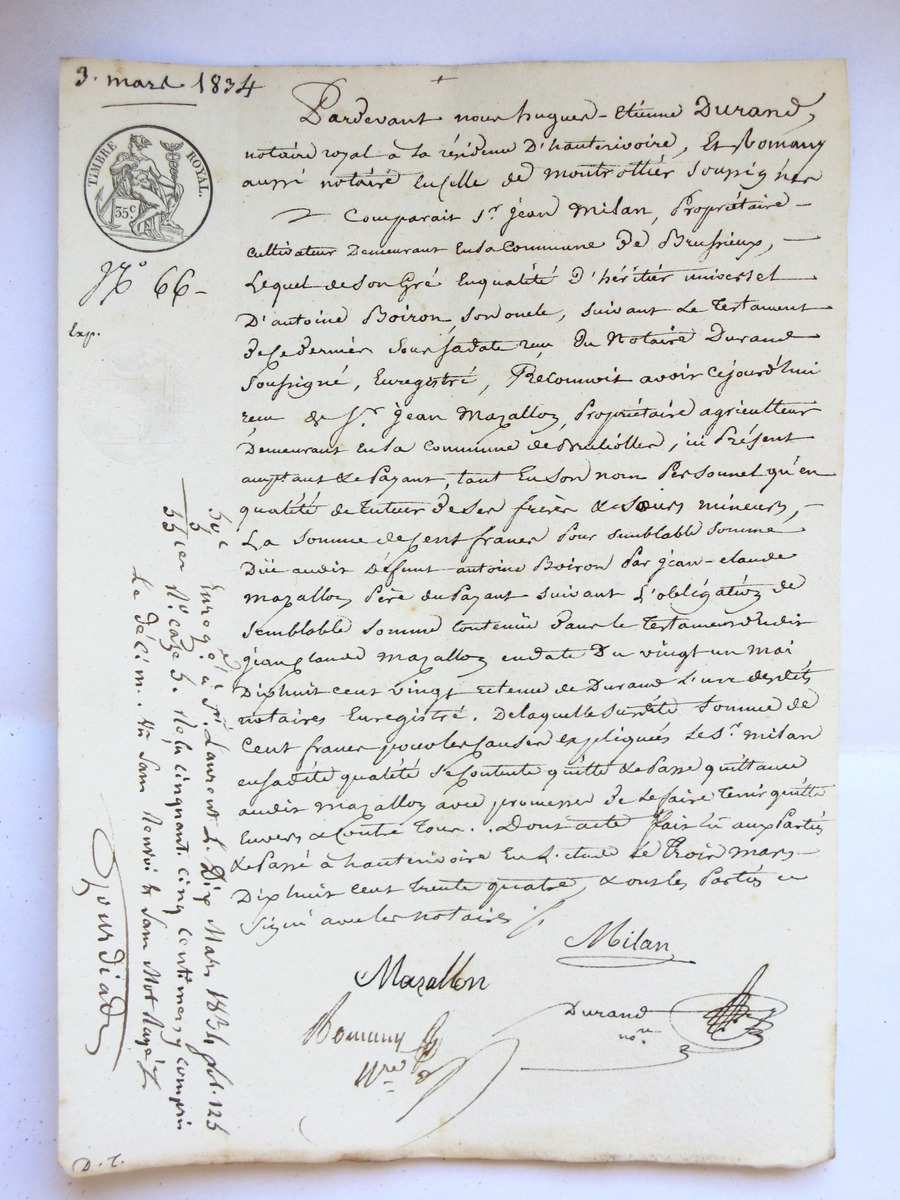 3. mars 1834
TIMBRE ROYAL.
35c
No 66 -
Exp.
Pardevant nous hugues-Etienne Durand,
notaire royal à la résidence D'hauterivoire, Et Romany
aussi notaire en celle de montrottier soussignés
Comparait Sr. jean Milan, Propriétaire-
cultivateur Demeurant En la Commune de Brussieux, -
Lequel de son Gré En qualité D'héritier universel
D'antoine Boiron, son oncle, suivant Le Testament
de ce dernier sous sa date reçu Du Notaire Durand
soussigné, Enregistré, Reconnoit avoir cejourd'hui
reçu de Sr. jean Mazallon, Propriétaire agriculteur
Demeurant En la Commune de Brulliolles, ici Présent
acceptant & Payant, tant En son nom Personnel qu'en
qualité de tuteur de ses frères & sœurs mineurs, -
La somme de cent francs Pour semblable somme
Düe audit Défunt antoine Boiron Par jean-claude
mazallon Père du Payant suivant L'obligation de
semblable somme contenüe dans le testament dudit
jean claude Mazallon en date Du vingt un mai
Dix huit cent vingt retenu de Durand L'un desdits
notaires Enregistré. De laquelle susdite somme de
Cent francs pour les causes expliquées Le Sr. milan
en sadite qualité se Contente quitte & Passe quittance
audit Mazallon avec promesse de Le faire tenir quitte
Envers & Contre Tous. Dont acte fait Lû aux Parties
& Passé à hauterivoire En L'étude Le Trois mars
Dix huit cent trente quatre, & ont les Parties
signé avec les notaires
Milan
Mazallon
Durand
nore
Romany
Nre
Enregé à St. Laurent L. Dix Mars 1834 fol. 125
Ro. case 5. Reçu cinquante cinq centimes y compris
Le décime. un sans Renvoi & sans Mot Rayé
Gourdiad
D. t.